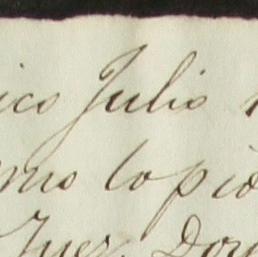 ico Julio
mo copio
Juez. Doy